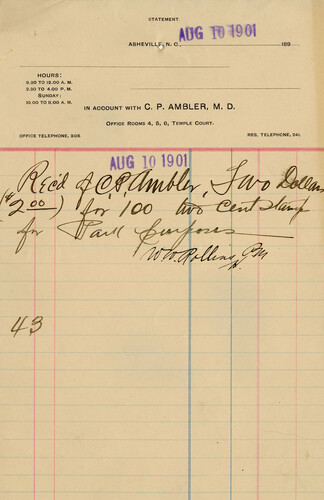 STATEMENT.
AUG 10 1901
ASHEVILLE, N. C., 189
HOURS:
9.30 TO 12.00 A. M.
2.30 TO 4.00 P. M.
SUNDAY:
10.00 TO 11.00 A. M.
IN ACCOUNT WITH C. P. AMBLER, M. D.
OFFICE ROOMS 4, 5, 6, TEMPLE COURT.
OFFICE TELEPHONE, 205. RES. TELEPHONE, 241.
AUG 10 1901
Rec'd of C.P. Ambler, Two Dollars
($2.00) for 100 two cent stamp
for Park purposes
W.W. Rollins PM
43